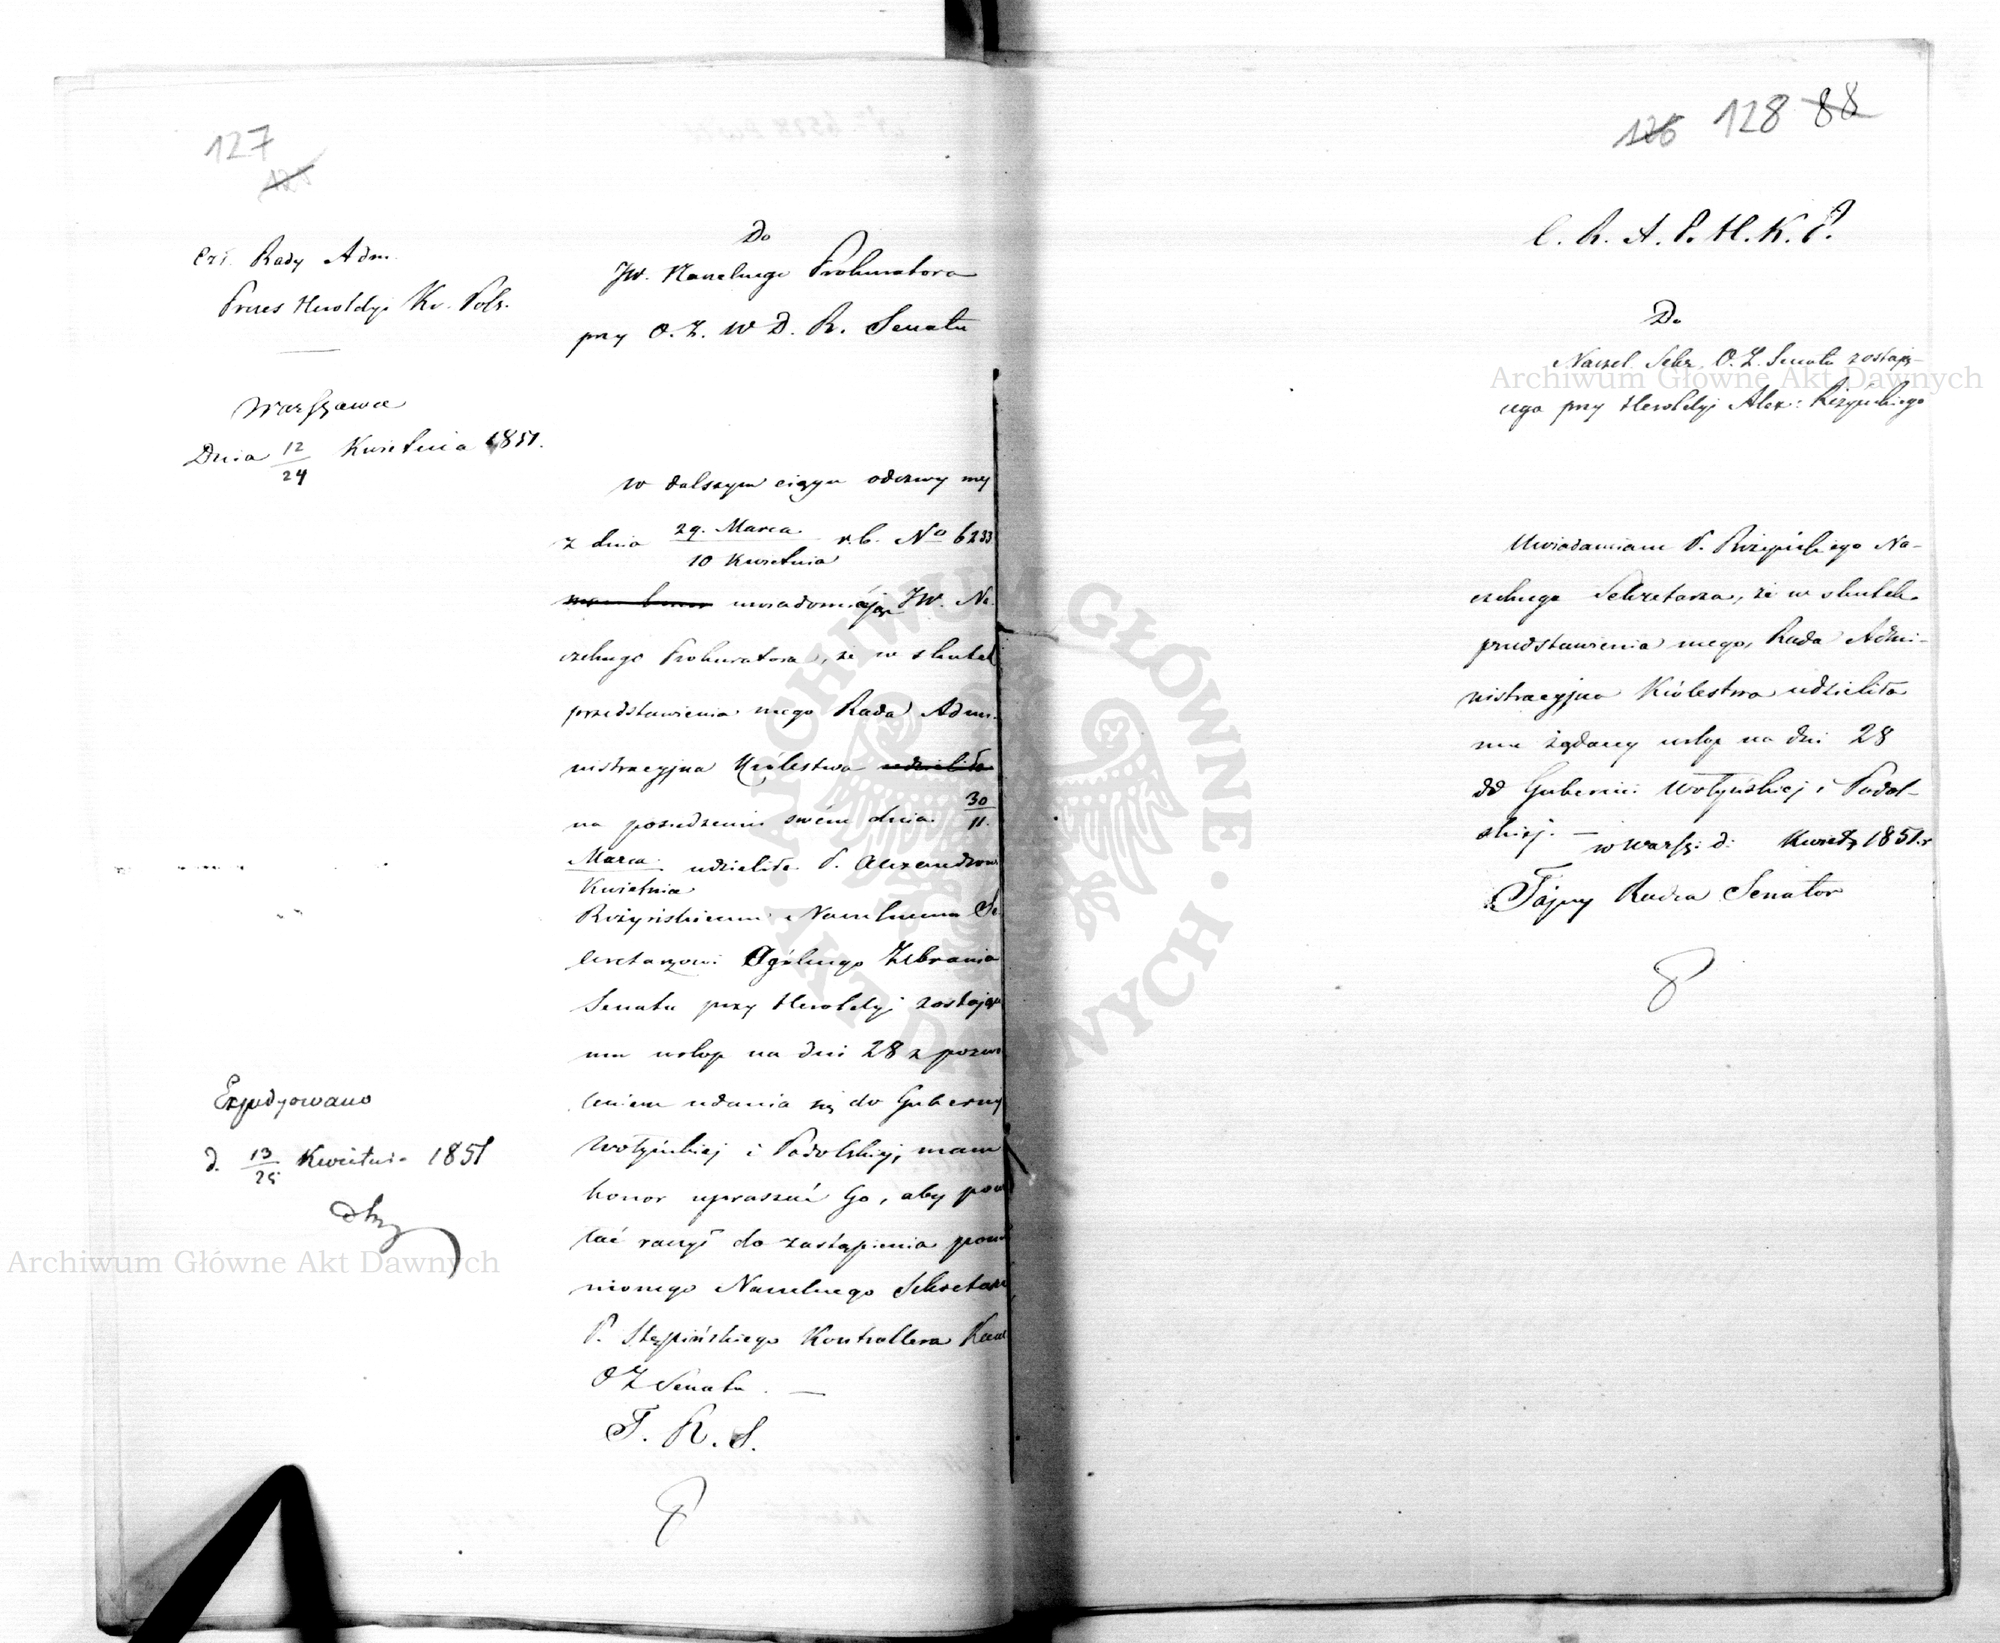 127
Czł. Rady Adm.
Prezes Heroldyi Kr. Pols.
Warszawa
Dnia 12/24 Kwietnia 1851.
Expedyowano
d. 13/25 Kwietnia 1851
Do
JW. Naczelnego Prokuratora
przy O. Z. W D. R. Senatu
W dalszym ciągu odezwy mej
z dnia 29. Marca / 10 Kwietnia r.b. No 6233
uwiadomiając JW. Na-
czelnego Prokuratora, że w skutek
przedstawienia mego Rada Admi-
nistracyjna Królestwa udzieliła
na posiedzeniu swém dnia 30/11.
Marca / Kwietnia udzieliła P. Alexandrowi
Różyńskiemu Naczelnemu Se-
kretarzowi Ogólnego Zebrania
Senatu przy Heroldyi zostające-
mu urlop na dni 28 z pozwo-
leniem udania się do Gubernij
Wołyńskiej i Podolskiej, mam
honor upraszać Go, aby powo-
łać raczył do zastąpienia pomie-
nionego Naczelnego Sekretarza
P. Stępińskiego Kontrollera Kanc
O Z Senatu. —
T. R. S.
126 128 88
C. R. A. P. H. K. P.
Do
Naczel. Sekr. O. Z. Senatu zostają-
cego przy Heroldyi Alex: Różyńskiego
Uwiadamiam P. Różyńskiego Na-
czelnego Sekretarza, że w skutek
przedstawienia mego, Rada Admi-
nistracyjna Królestwa udzieliła
mu żądany urlop na dni 28
do Gubernii Wołyńskiej i Podol-
skiej. — w Warsz: d: Kwietn 1851 r
Tajny Radca Senator
Archiwum Główne Akt Dawnych
Archiwum Główne Akt Dawnych
ARCHIWUM GŁÓWNE · AKT DAWNYCH ·